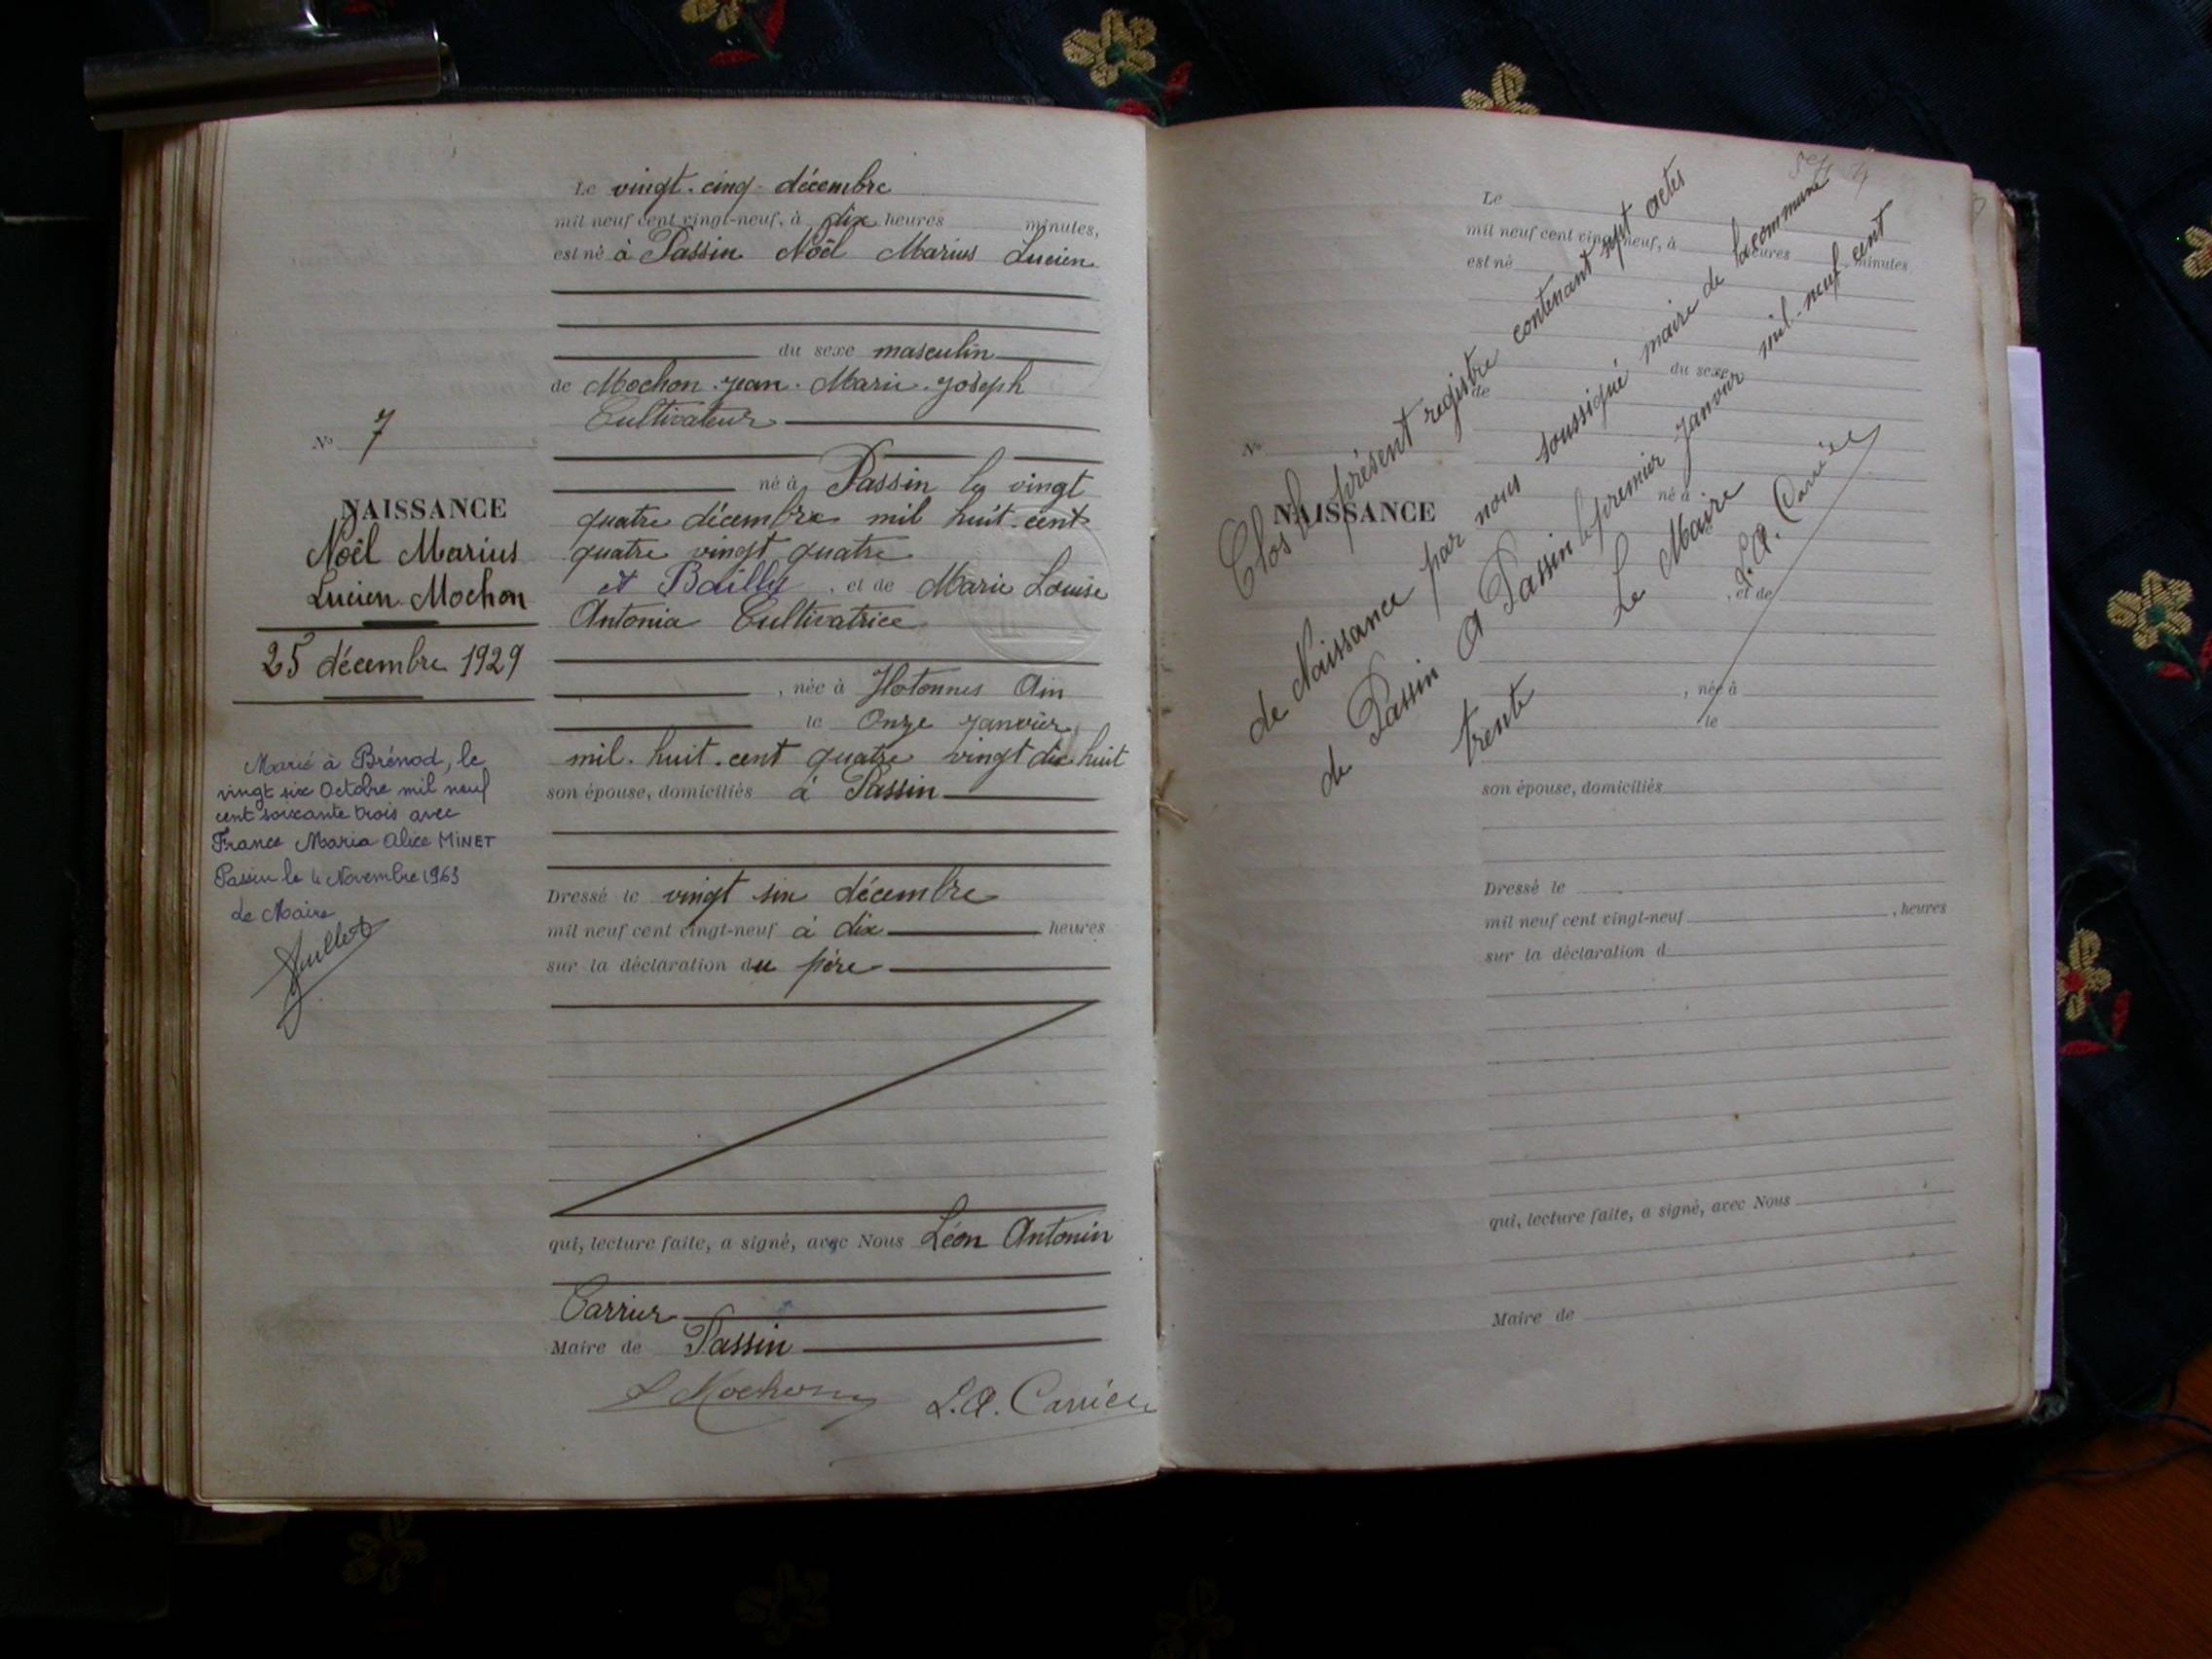 Le vingt-cinq décembre
mil neuf cent vingt-neuf, à dix heures minutes,
est né à Passin Noël Marius Lucien
du sexe masculin
de Mochon Jean Marie Joseph
Cultivateur
né à Passin le vingt
quatre décembre mil huit cent
quatre vingt quatre
et Bailly, et de Marie Louise
Antonia Cultivatrice
, née à Hotonnes Ain
le Onze Janvier
mil huit cent quatre vingt dix huit
son épouse, domiciliés à Passin
Dressé le vingt six décembre
mil neuf cent vingt-neuf à dix heures
sur la déclaration du père
qui, lecture faite, a signé, avec Nous Léon Antonin
Carrier
Maire de Passin
Mochon L.A. Carrier
N° 7
NAISSANCE
Noël Marius
Lucien Mochon
25 décembre 1929
Marié à Brénod, le
vingt six Octobre mil neuf
cent soixante trois avec
France Maria Alice MINET
Passin le 4 Novembre 1963
Le Maire
Le
mil neuf cent vingt-neuf, à heures minutes
est né
du sexe
de
N°
NAISSANCE
né à
, et de
, née à
le
son épouse, domiciliés
Dressé le
mil neuf cent vingt-neuf , heures
sur la déclaration d
qui, lecture faite, a signé, avec Nous
Maire de
Clos le présent registre contenant sept actes
de Naissance par nous soussigné maire de la commune
de Passin A Passin le premier Janvier mil-neuf cent
trente
Le Maire
L.A. Carrier